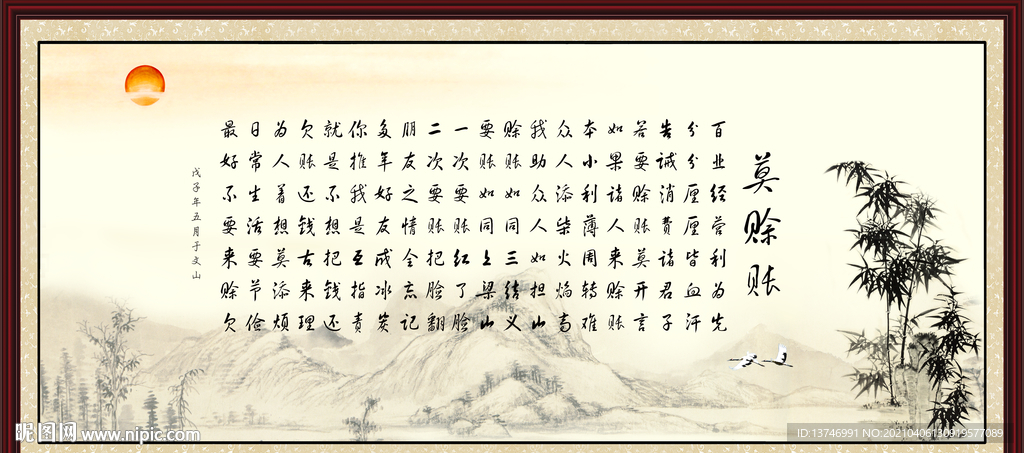 莫赊账
百业经营利为先
分分厘厘皆血汗
告诫消费诸君子
若要赊账莫开言
如果诸人来赊账
本小利薄周转难
众人添柴火焰高
我助众人如担山
赊账如同三结义
要账如同上梁山
一次要账红了脸
二次要账把脸翻
朋友之情全忘记
多年好友成冰炭
你推我是互指责
就是不想把钱还
欠账还钱古来理
为人着想莫添烦
日常生活要节俭
最好不要来赊欠
戊子年五月于文山
昵图网 www.nipic.com
ID:13746991 NO:20210406130919577089